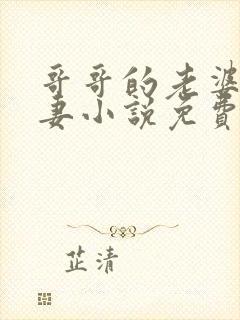 哥哥的老婆
妻小說免費
芷清